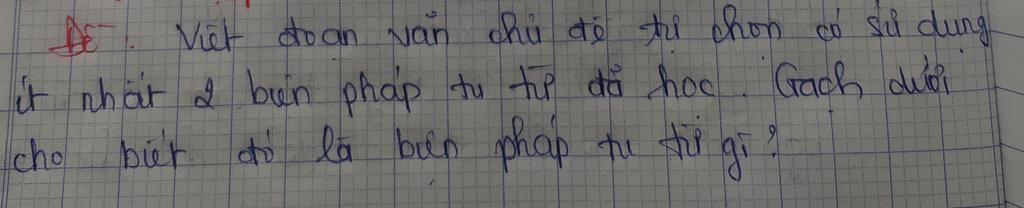 Đề: Viết đoạn văn chủ đề tự chọn có sử dụng
ít nhất 2 biện pháp tu từ đã học. Gạch dưới
cho biết đó là biện pháp tu từ gì?